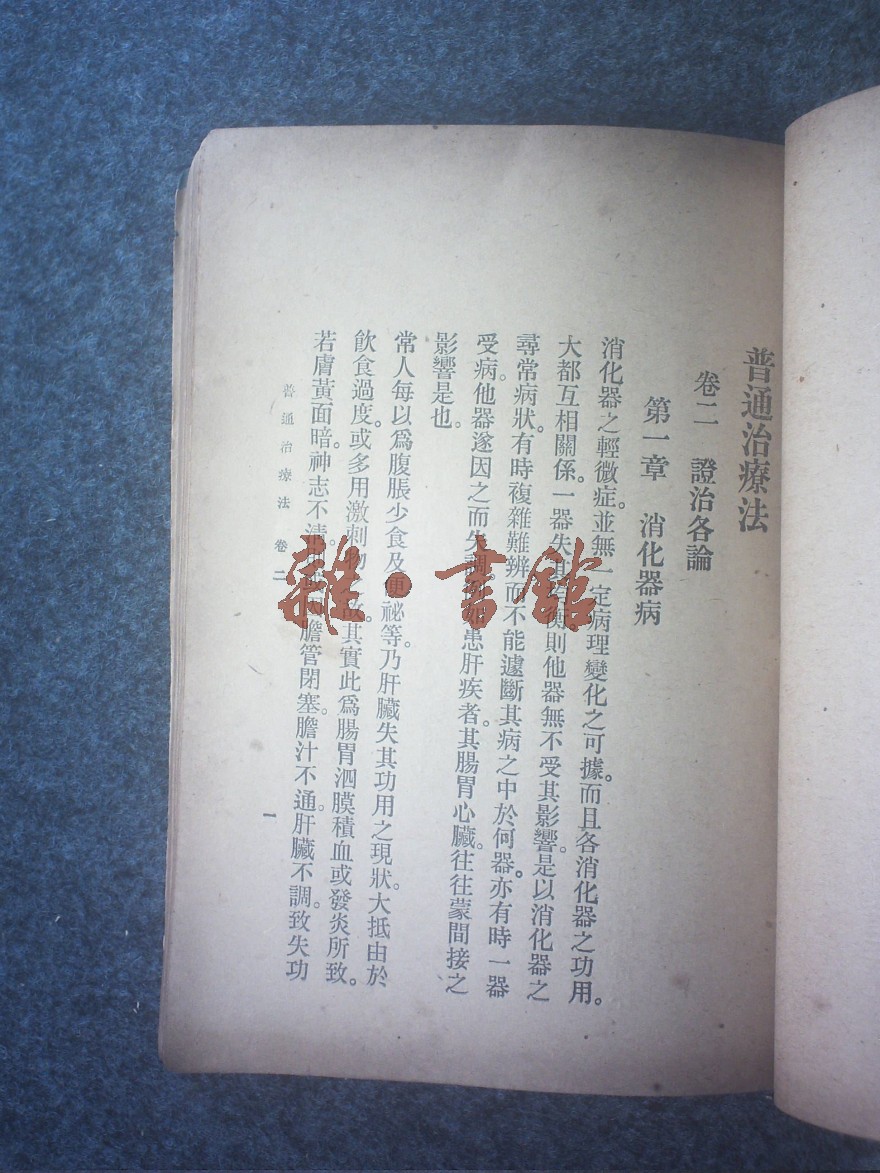 普通治療法
卷二　證治各論
第一章　消化器病
消化器之輕微症。並無一定病理變化之可據。而且各消化器之功用。
大都互相關係。一器失其衡則他器無不受其影響。是以消化器之
尋常病狀。有時複雜難辨而不能遽斷其病之中於何器。亦有時一器
受病。他器遂因之而失調。如患肝疾者。其腸胃心臟。往往蒙間接之
影響是也。
常人每以爲腹脹少食及便祕等。乃肝臟失其功用之現狀。大抵由於
飲食過度。或多用激刺物之故。其實此爲腸胃泗膜積血或發炎所致。
若膚黃面暗。神志不清。因膽管閉塞。膽汁不通。肝臟不調。致失功
普通治療法　卷二
一
雜·書館